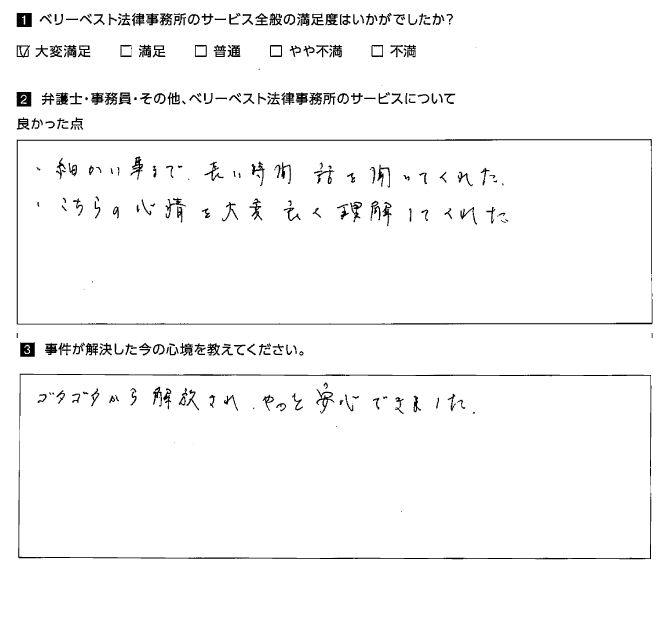 1 ベリーベスト法律事務所のサービス全般の満足度はいかがでしたか?
☑ 大変満足 □ 満足 □ 普通 □ やや不満 □ 不満
2 弁護士・事務員・その他、ベリーベスト法律事務所のサービスについて
良かった点
・細かい事まで、長い時間 話を聞いてくれた。
・こちらの心情を大変良く理解してくれた
3 事件が解決した今の心境を教えてください。
ゴタゴタから解放され、やっと安心できました。